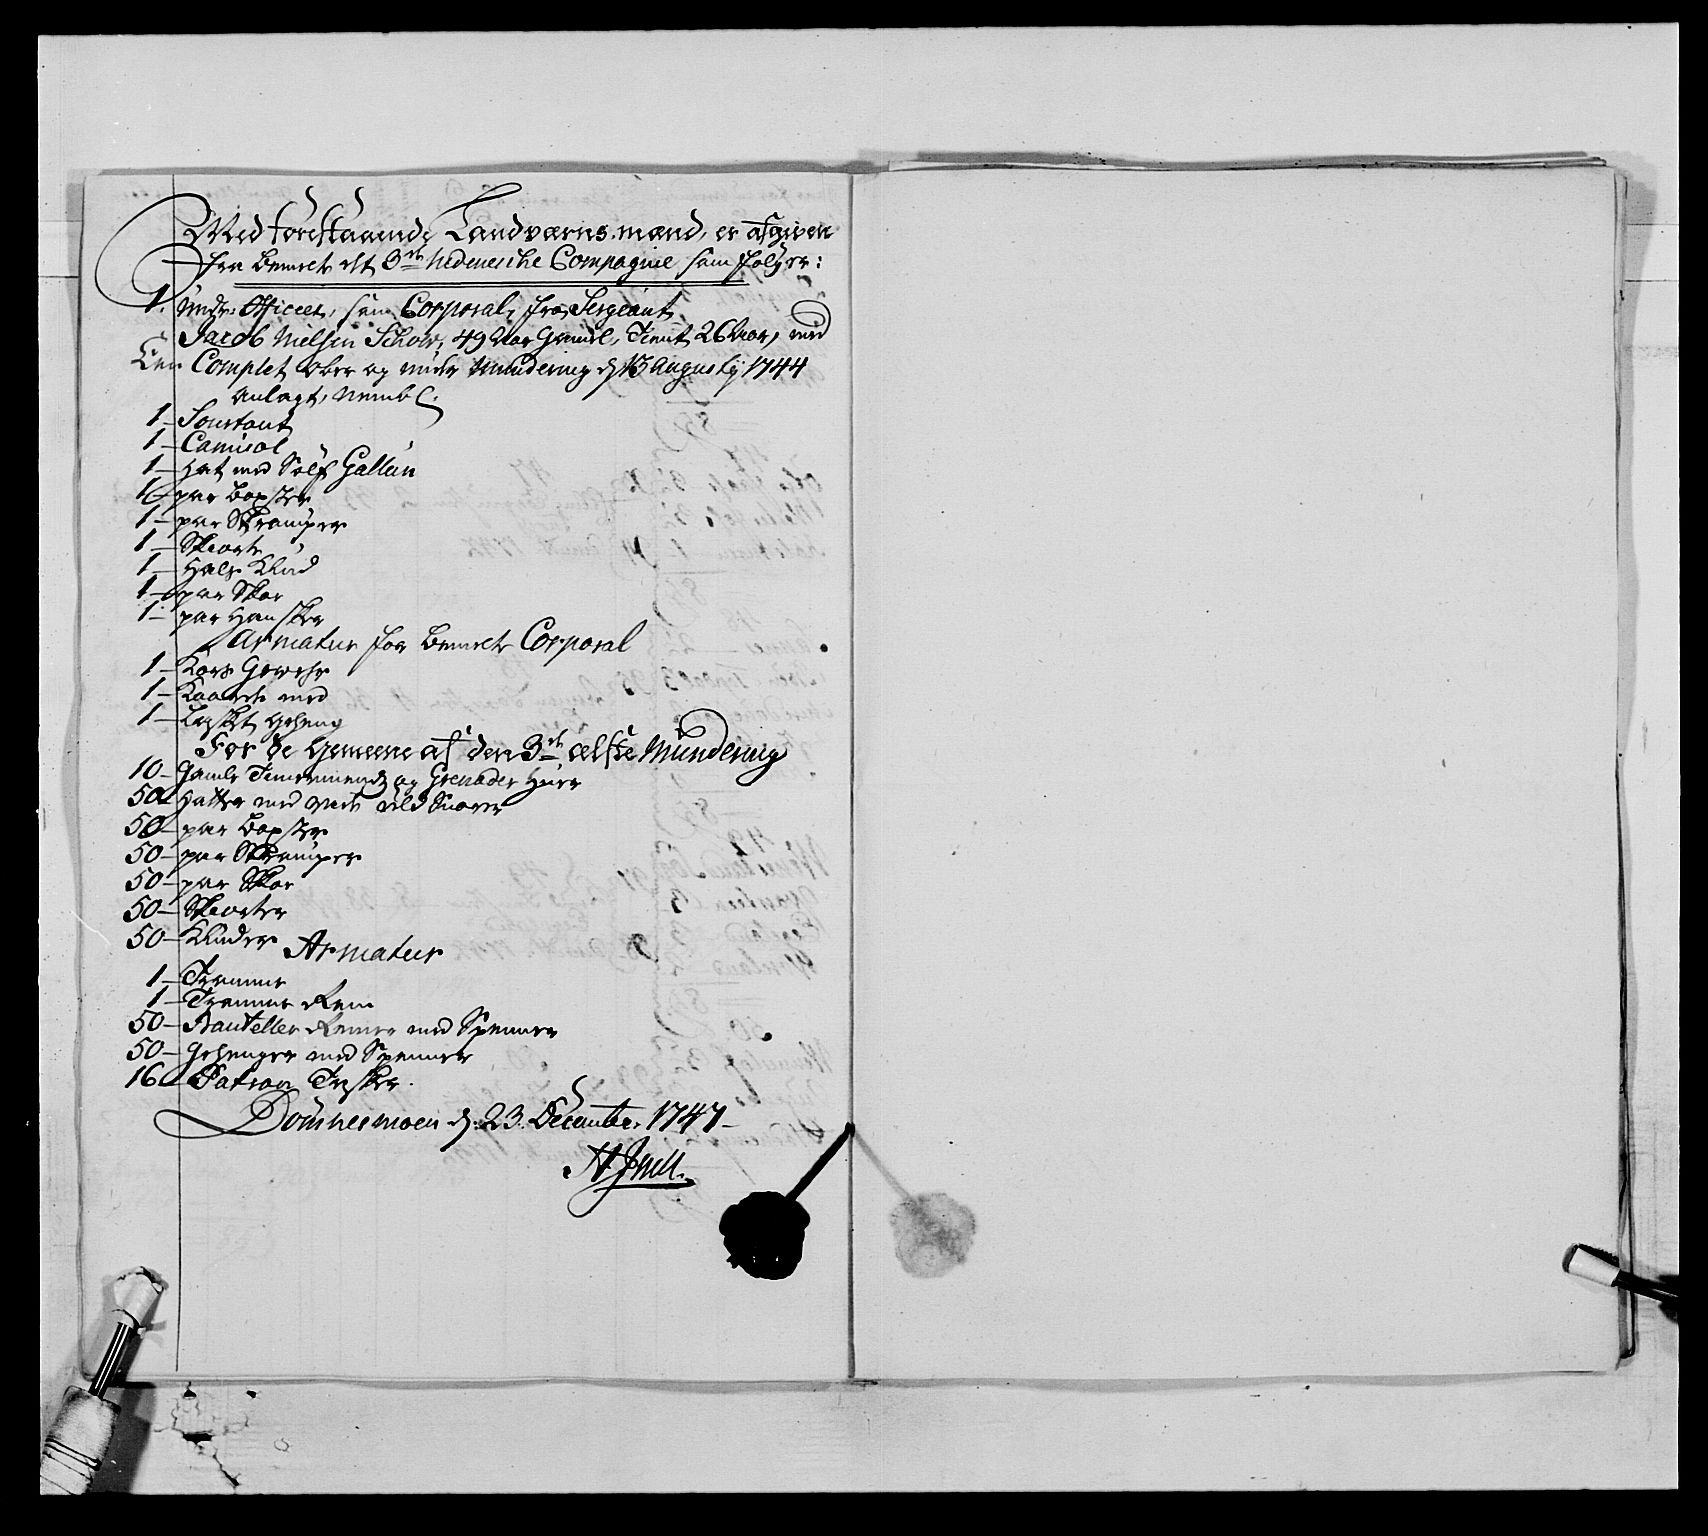 Med forestaaende Landværns mænd, er afgiven
fra bemelte det 3de Nedenesche Compagnie som følger:
1. Under Officeer, som Corporal, fra Sergeant
Jacob Nielsen Schow, 49 Aar Gamel, Tient 26 Aar, med
Een Complet Ober og under Mundering d 13 Augusty 1744
Anlagt, Nembl:
1 - Sourtout
1 - Camisol
1 - Hat med Sølf Gallun
1 - par Boxser
1 - par Strømper
1 - Skiorte
1 - Hals Klud
1 - par Skoe
1 - par Hansker
Armatur for bemelte Corporal
1 - Kors Gewehr
1 - Kaarde med
1 - Geheng
For de Gemeene af den 3de ælste Mundering
10 - Gamle Timermends og Grenader Huer
50 - Hatter med Snorer
50 - par Boxser
50 - par Strømper
50 - par Skoe
50 - Skiorter
50 - Kluder
Armatur
1 - Tromme
1 - Tromme Rem
50 - Remer med Spenner
50 - Gehenger med Spenner
16 - Patron Tasker.
Dømnesmoen d: 23. Decembr. 1747